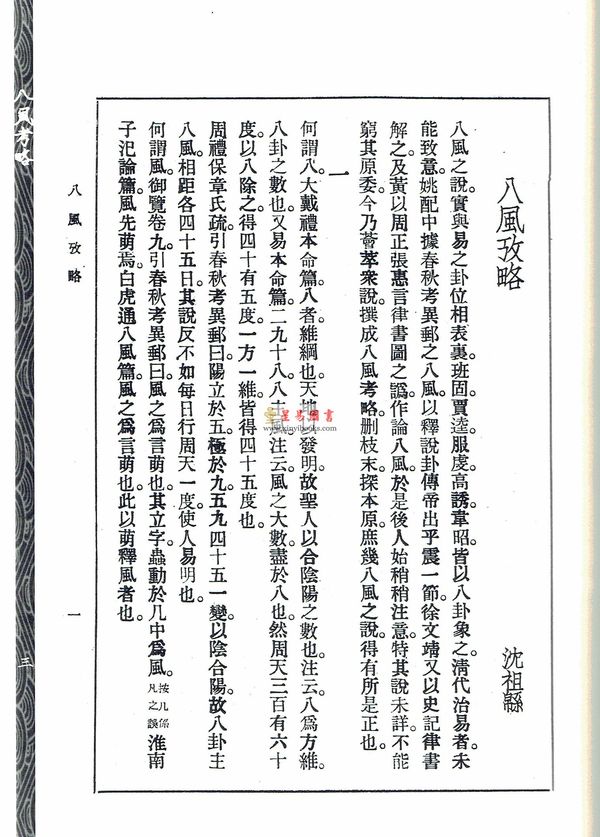 八風攷略
沈祖緜
八風之說。實與易之卦位相表裏。班固賈逵服虔高誘韋昭皆以八卦象之。清代治易者。未
能致意。姚配中據春秋考異郵之八風。以釋說卦傳帝出乎震一節。徐文靖又以史記律書
解之。及黃以周正張惠言律書圖之譌。作論八風。於是後人始稍稍注意。特其說未詳。不能
窮其原委。今乃薈萃衆說。撰成八風考略。刪枝末。探本原。庶幾八風之說。得有所是正也。
一
何謂八。大戴禮本命篇。八者維綱也。天地 發明。故聖人以合陰陽之數也。注云八爲方維。
八卦之數也。又易本命篇。二九十八。八主風。注云。風之大數。盡於八也。然周天三百有六十
度。以八除之。得四十有五度。一方一維。皆得四十五度也。
周禮保章氏疏。引春秋考異郵曰。陽立於五。極於九。五九四十五一變。以陰合陽。故八卦主
八風。相距各四十五日。其說反不如每日行周天一度。使人易明也。
何謂風。御覽卷九引春秋考異郵曰。風之爲言萌也。其立字。蟲動於几中爲風。按几係凡之誤 淮南
子氾論篇。風先萌焉。白虎通八風篇。風之爲言萌也。此以萌釋風者也。
八風攷略
一
八風考略
三
星易圖書
www.xinyibooks.com